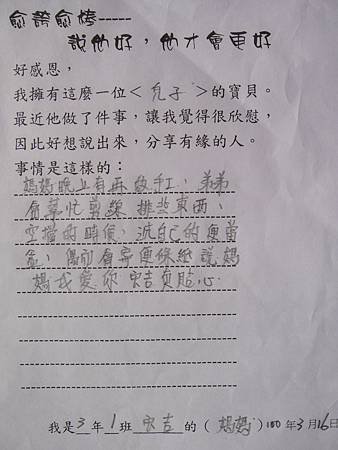 愈誇愈棒-----
說他好，他才會更好
好感恩，
我擁有這麼一位<兒子>的寶貝。
最近他做了件事，讓我覺得很欣慰，
因此好想說出來，分享有緣的人。
事情是這樣的：
媽媽晚上有再做手工、弟弟
會幫忙剪線 排些東西、
空檔的時候、洗自己的便當
盒、偶而會寫便條紙說媽
媽我愛你 貼心
我是3年1班 吉的(媽媽)100年3月16日